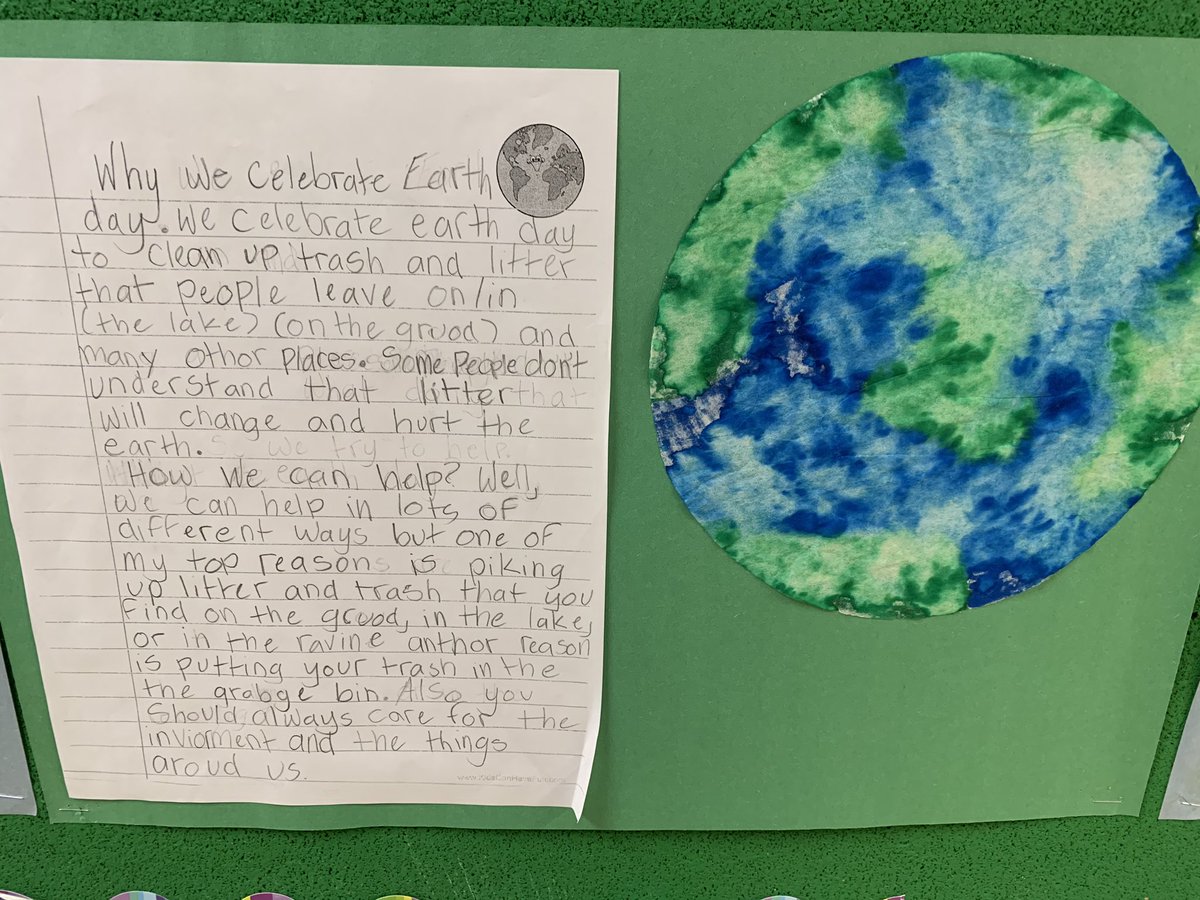 Why We celebrate Earth
day. We celebrate earth day
to clean up trash and litter
that people leave on/in
(the lake) (on the gruod) and
many othor places. Some people don't
understand that litter
will change and hurt the
earth.
How we can help? Well,
we can help in lots of
different ways but one of
my top reasons is piking
up litter and trash that you
find on the gruod, in the lake,
or in the ravine anthor reason
is putting your trash in the
the grabge bin. Also you
should always care for the
inviorment and the things
aroud us.